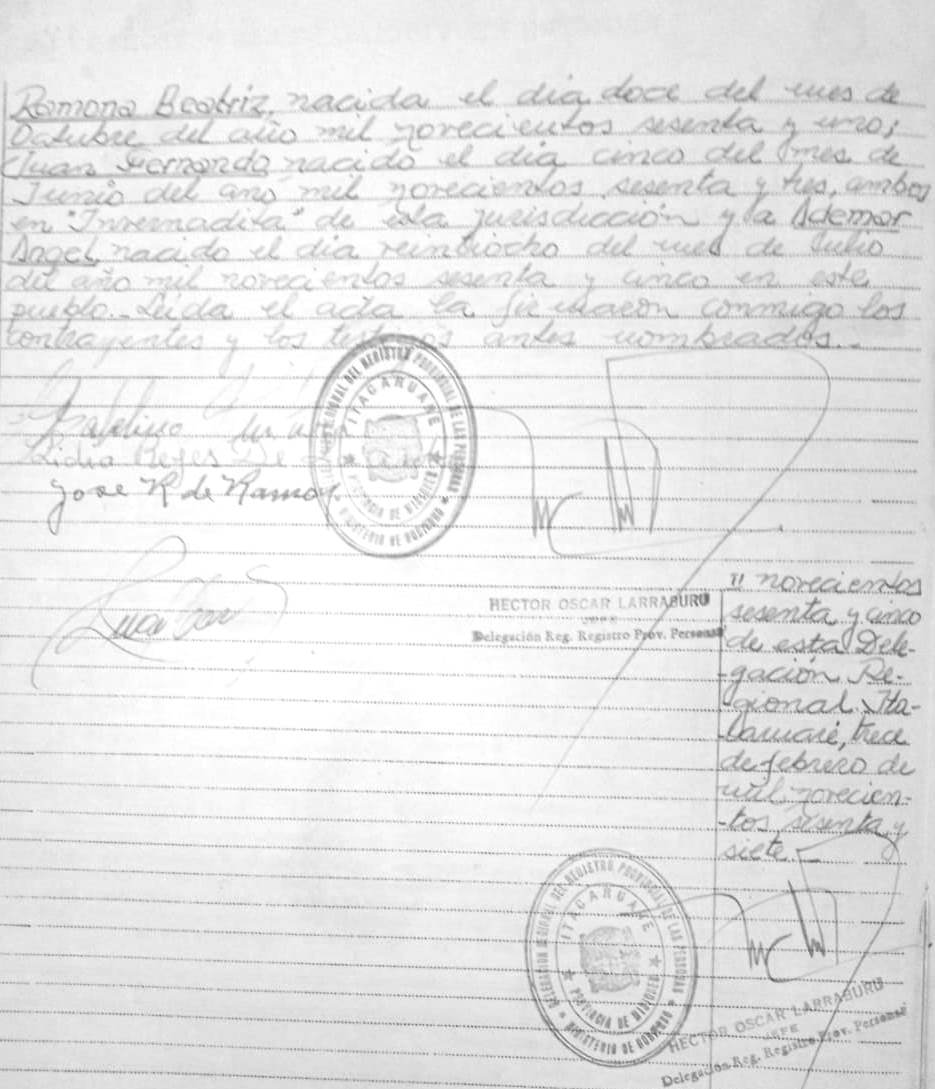 Ramona Beatriz, nacida el dia doce del mes de
Octubre del año mil novecientos sesenta y uno;
Juan Fernando nacido el dia cinco del mes de
Junio del año mil novecientos sesenta y tres, ambos
en "Invernadita" de esta jurisdicción y a Ademar
Angel, nacido el dia veintiocho del mes de Julio
del año mil novecientos sesenta y cinco en este
pueblo.- Leida el acta la firmaron conmigo los
contrayentes y los testigos antes nombrados.-
DELEGACION REGIONAL DEL REGISTRO PROVINCIAL DE LAS PERSONAS
ITACARUARE
PROVINCIA DE MISIONES
MINISTERIO DE GOBIERNO
Lidia Reyes De
Jose R de Ramos
HECTOR OSCAR LARRABURU
JEFE
Delegación Reg. Registro Prov. Personas
" novecientos
sesenta y cinco
de esta Dele-
-gación Re-
-gional. Ita-
-caruaré, trece
de febrero de
mil novecien-
-tos sesenta y
siete.-
DELEGACION REGIONAL DEL REGISTRO PROVINCIAL DE LAS PERSONAS
ITACARUARE
PROVINCIA DE MISIONES
MINISTERIO DE GOBIERNO
HECTOR OSCAR LARRABURU
JEFE
Delegación Reg. Registro Prov. Personas